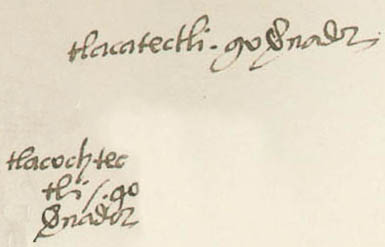 tlacatectli. goVnador
tlacochtec
tli /. go
Vnador